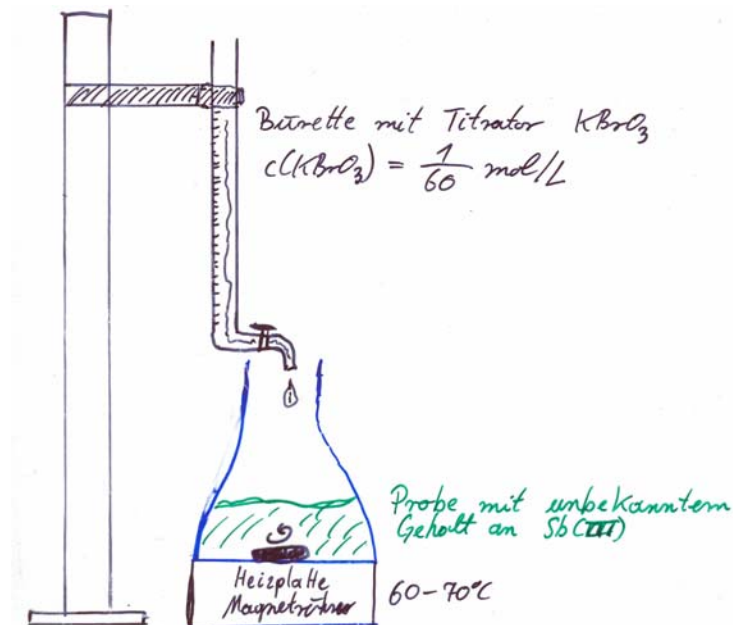 Bürette mit Titrator KBrO₃
c(KBrO₃) = 1/60 mol/L
Probe mit unbekanntem
Gehalt an Sb(III)
Heizplatte
Magnetrührer
60–70°C